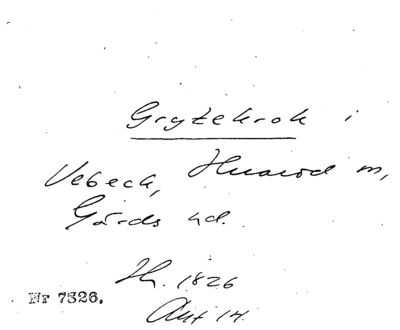 Grytekrok i
Vebeck, Huarod m,
Gärds hd.
Th. 1826
Ant 14.
Nr 7326.